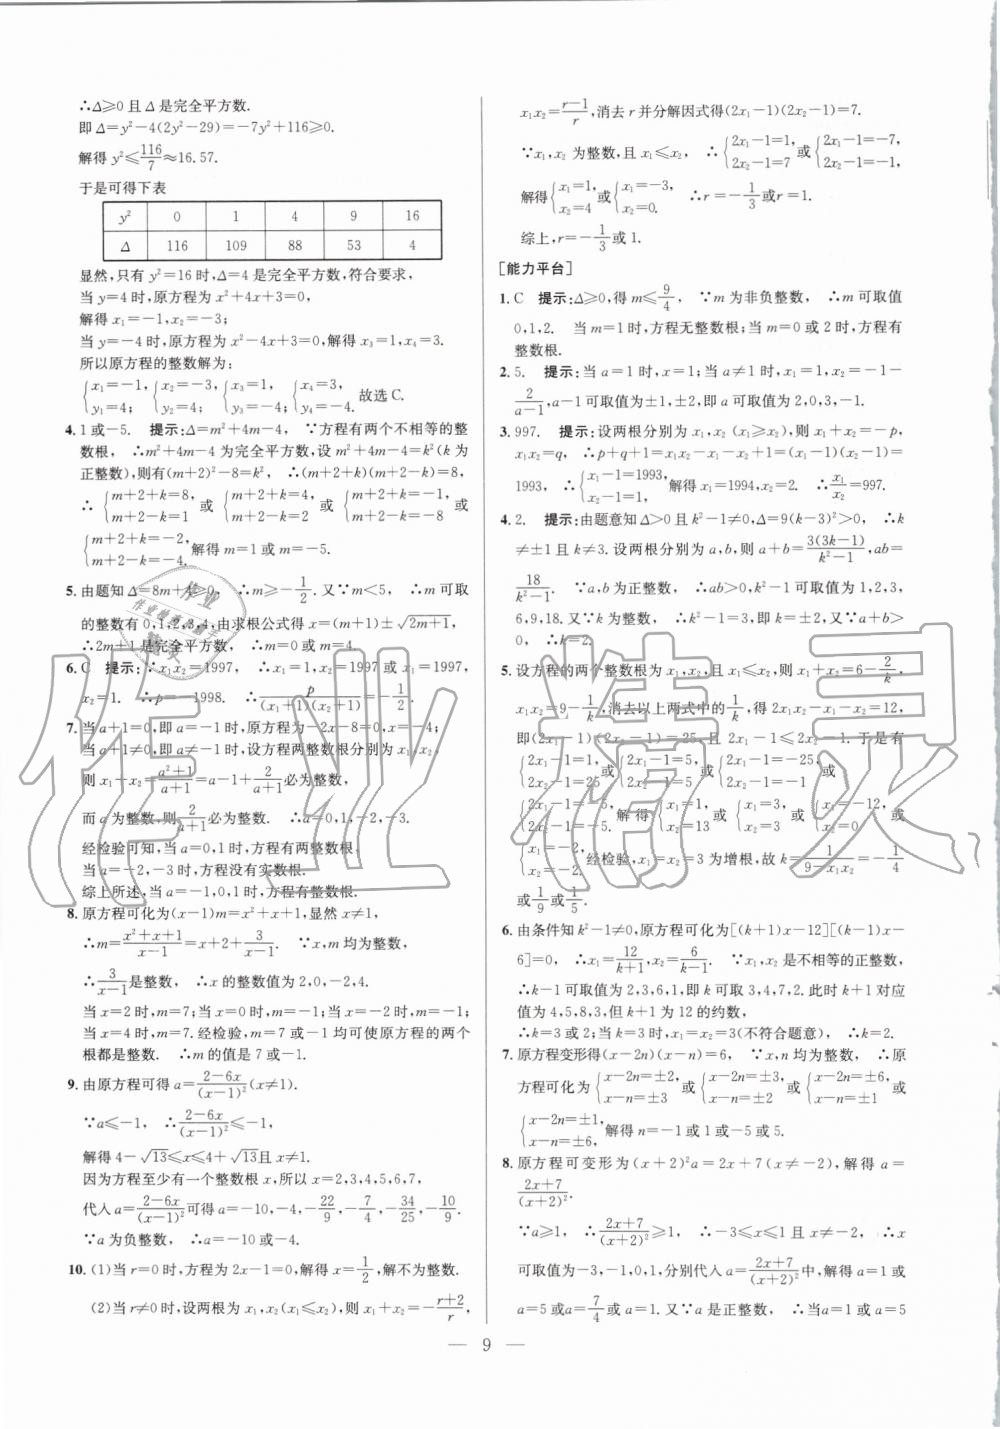 ∴Δ≥0且Δ是完全平方数.
即Δ=y²-4(2y²-29)=-7y²+116≥0.
解得 y²≤116/7≈16.57.
于是可得下表
y² 0 1 4 9 16
Δ 116 109 88 53 4
显然,只有 y²=16时,Δ=4是完全平方数,符合要求,
当 y=4时,原方程为 x²+4x+3=0,
解得 x₁=-1,x₂=-3;
当 y=-4时,原方程为 x²-4x+3=0,解得 x₃=1,x₄=3.
所以原方程的整数解为:
{x₁=-1, y₁=4; {x₂=-3, y₂=4; {x₃=1, y₃=-4; {x₄=3, y₄=-4. 故选C.
4.1或-5. 提示:Δ=m²+4m-4, ∵方程有两个不相等的整
数根, ∴m²+4m-4为完全平方数,设 m²+4m-4=k²(k为
正整数),则有(m+2)²-8=k², ∴(m+2+k)(m+2-k)=8,
∴{m+2+k=8, m+2-k=1 或{m+2+k=4, m+2-k=2 或{m+2+k=-1, m+2-k=-8 或
{m+2+k=-2, m+2-k=-4. 解得 m=1或 m=-5.
5.由题知Δ=8m+4>0, ∴m>-1/2. 又∵m<5, ∴m可取
的整数有0,1,2,3,4,由求根公式得 x=(m+1)±√(2m+1),
∴2m+1是完全平方数, ∴m=0或 m=4.
6.C 提示:∵x₁x₂=1997, ∴x₁=1,x₂=1997或 x₁=1997,
x₂=1. ∴p=-1998. ∴p/((x₁+1)(x₂+1))=-1/2.
7.当 a+1=0,即 a=-1时,原方程为-2x-8=0,x=-4;
当 a+1≠0,即 a≠-1时,设方程两整数根分别为 x₁,x₂,
则 x₁+x₂=(a²+1)/(a+1)=a-1+2/(a+1)必为整数,
而 a为整数,则2/(a+1)必为整数. ∴a=0,1,-2,-3.
经检验可知,当 a=0,1时,方程有两整数根.
当 a=-2,-3时,方程没有实数根.
综上所述,当 a=-1,0,1时,方程有整数根.
8.原方程可化为(x-1)m=x²+x+1,显然 x≠1,
∴m=(x²+x+1)/(x-1)=x+2+3/(x-1). ∵x,m均为整数,
∴3/(x-1)是整数, ∴x的整数值为2,0,-2,4.
当 x=2时,m=7;当 x=0时,m=-1;当 x=-2时,m=-1;
当 x=4时,m=7.经检验,m=7或-1均可使原方程的两个
根都是整数. ∴m的值是7或-1.
9.由原方程可得 a=(2-6x)/(x-1)²(x≠1).
∵a≤-1, ∴(2-6x)/(x-1)²≤-1,
解得4-√13≤x≤4+√13且 x≠1.
因为方程至少有一个整数根 x,所以 x=2,3,4,5,6,7,
代入 a=(2-6x)/(x-1)²可得 a=-10,-4,-22/9,-7/4,-34/25,-10/9.
∵a为负整数, ∴a=-10或-4.
10.(1)当 r=0时,方程为2x-1=0,解得 x=1/2,解不为整数.
(2)当 r≠0时,设两根为 x₁,x₂(x₁≤x₂),则 x₁+x₂=-(r+2)/r,
x₁x₂=(r-1)/r,消去 r并分解因式得(2x₁-1)(2x₂-1)=7.
∵x₁,x₂为整数,且 x₁≤x₂, ∴{2x₁-1=1, 2x₂-1=7 或{2x₁-1=-7, 2x₂-1=-1.
解得{x₁=1, x₂=4 或{x₁=-3, x₂=0. ∴r=-1/3或 r=1.
综上,r=-1/3或1.
[能力平台]
1.C 提示:Δ≥0,得 m≤9/4, ∵m为非负整数, ∴m可取值
0,1,2. 当 m=1时,方程无整数根;当 m=0或2时,方程有
整数根.
2.5. 提示:当 a=1时,x=1;当 a≠1时,x₁=-1,x₂=-1-
2/(a-1),a-1可取值为±1,±2,即 a可取值为2,0,3,-1.
3.997. 提示:设两根分别为 x₁,x₂(x₁≥x₂),则 x₁+x₂=-p,
x₁x₂=q, ∴p+q+1=x₁x₂-x₁-x₂+1=(x₁-1)(x₂-1)=
1993, ∴{x₁-1=1993, x₂-1=1, 解得 x₁=1994,x₂=2. ∴x₁/x₂=997.
4.2. 提示:由题意知Δ>0且 k²-1≠0,Δ=9(k-3)²>0, ∴k
≠±1且 k≠3. 设两根分别为 a,b,则 a+b=3(3k-1)/(k²-1),ab=
18/(k²-1). ∵a,b为正整数, ∴ab>0,k²-1可取值为1,2,3,
6,9,18. 又∵k为整数, ∴k²-1=3或 k=±2,又∵a+b>
0, ∴k=2.
5.设方程的两个整数根为 x₁,x₂,且 x₁≤x₂,则 x₁+x₂=6-2/k,
x₁x₂=9-1/k,消去以上两式中的1/k,得2x₁x₂-x₁-x₂=12,
即(2x₁-1)(2x₂-1)=25,且2x₁-1≤2x₂-1. 于是有
{2x₁-1=1, 2x₂-1=25 或{2x₁-1=5, 2x₂-1=5 或{2x₁-1=-25, 2x₂-1=-1 或
{2x₁-1=-5, 2x₂-1=-5. 解得{x₁=1, x₂=13 或{x₁=3, x₂=3 或{x₁=-12, x₂=0 或
{x₁=-2, x₂=-2. 经检验,x₁=x₂=3为增根,故 k=1/(9-x₁x₂)=-1/4
或1/9或1/5.
6.由条件知 k²-1≠0,原方程可化为[(k+1)x-12][(k-1)x-
6]=0, ∴x₁=12/(k+1),x₂=6/(k-1). ∵x₁,x₂是不相等的正整数,
∴k-1可取值为2,3,6,1,即 k可取3,4,7,2. 此时 k+1对应
值为4,5,8,3,但 k+1为12的约数,
∴k=3或2;当 k=3时,x₁=x₂=3(不符合题意), ∴k=2.
7.原方程变形得(x-2n)(x-n)=6, ∵x,n均为整数, ∴原
方程可化为{x-2n=±2, x-n=±3 或{x-2n=±3, x-n=±2 或{x-2n=±6, x-n=±1 或
{x-2n=±1, x-n=±6, 解得 n=-1或1或-5或5.
8.原方程可变形为(x+2)²a=2x+7(x≠-2),解得 a=
(2x+7)/(x+2)².
∵a≥1, ∴(2x+7)/(x+2)²≥1, ∴-3≤x≤1且 x≠-2, ∴x
可取值为-3,-1,0,1,分别代入 a=(2x+7)/(x+2)²中,解得 a=1或
a=5或 a=7/4或 a=1. 又∵a是正整数, ∴当 a=1或 a=5
— 9 —
作业精灵